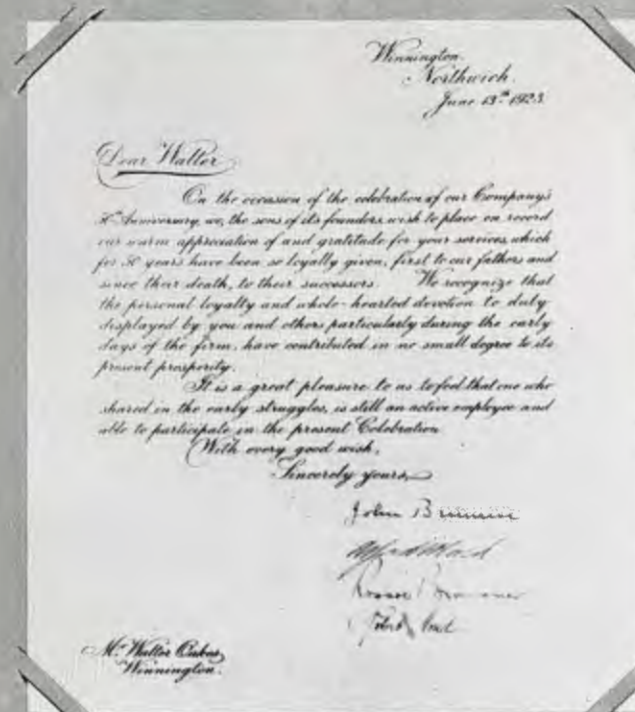 Winnington.
Northwich.
June 13th 1923.
Dear Walter
On the occasion of the celebration of our Company's
50th Anniversary, we, the sons of its founders, wish to place on record
our warm appreciation of and gratitude for your services, which
for 50 years have been so loyally given, first to our fathers and
since their death, to their successors. We recognize that
the personal loyalty and whole-hearted devotion to duty
displayed by you and others particularly during the early
days of the firm, have contributed in no small degree to its
present prosperity.
It is a great pleasure to us to feel that one who
shared in the early struggles, is still an active employee and
able to participate in the present Celebration
With every good wish,
Sincerely yours,
John Brunner
Alfred Mond
Roscoe Brunner
Robert Mond
Mr. Walter
Winnington.